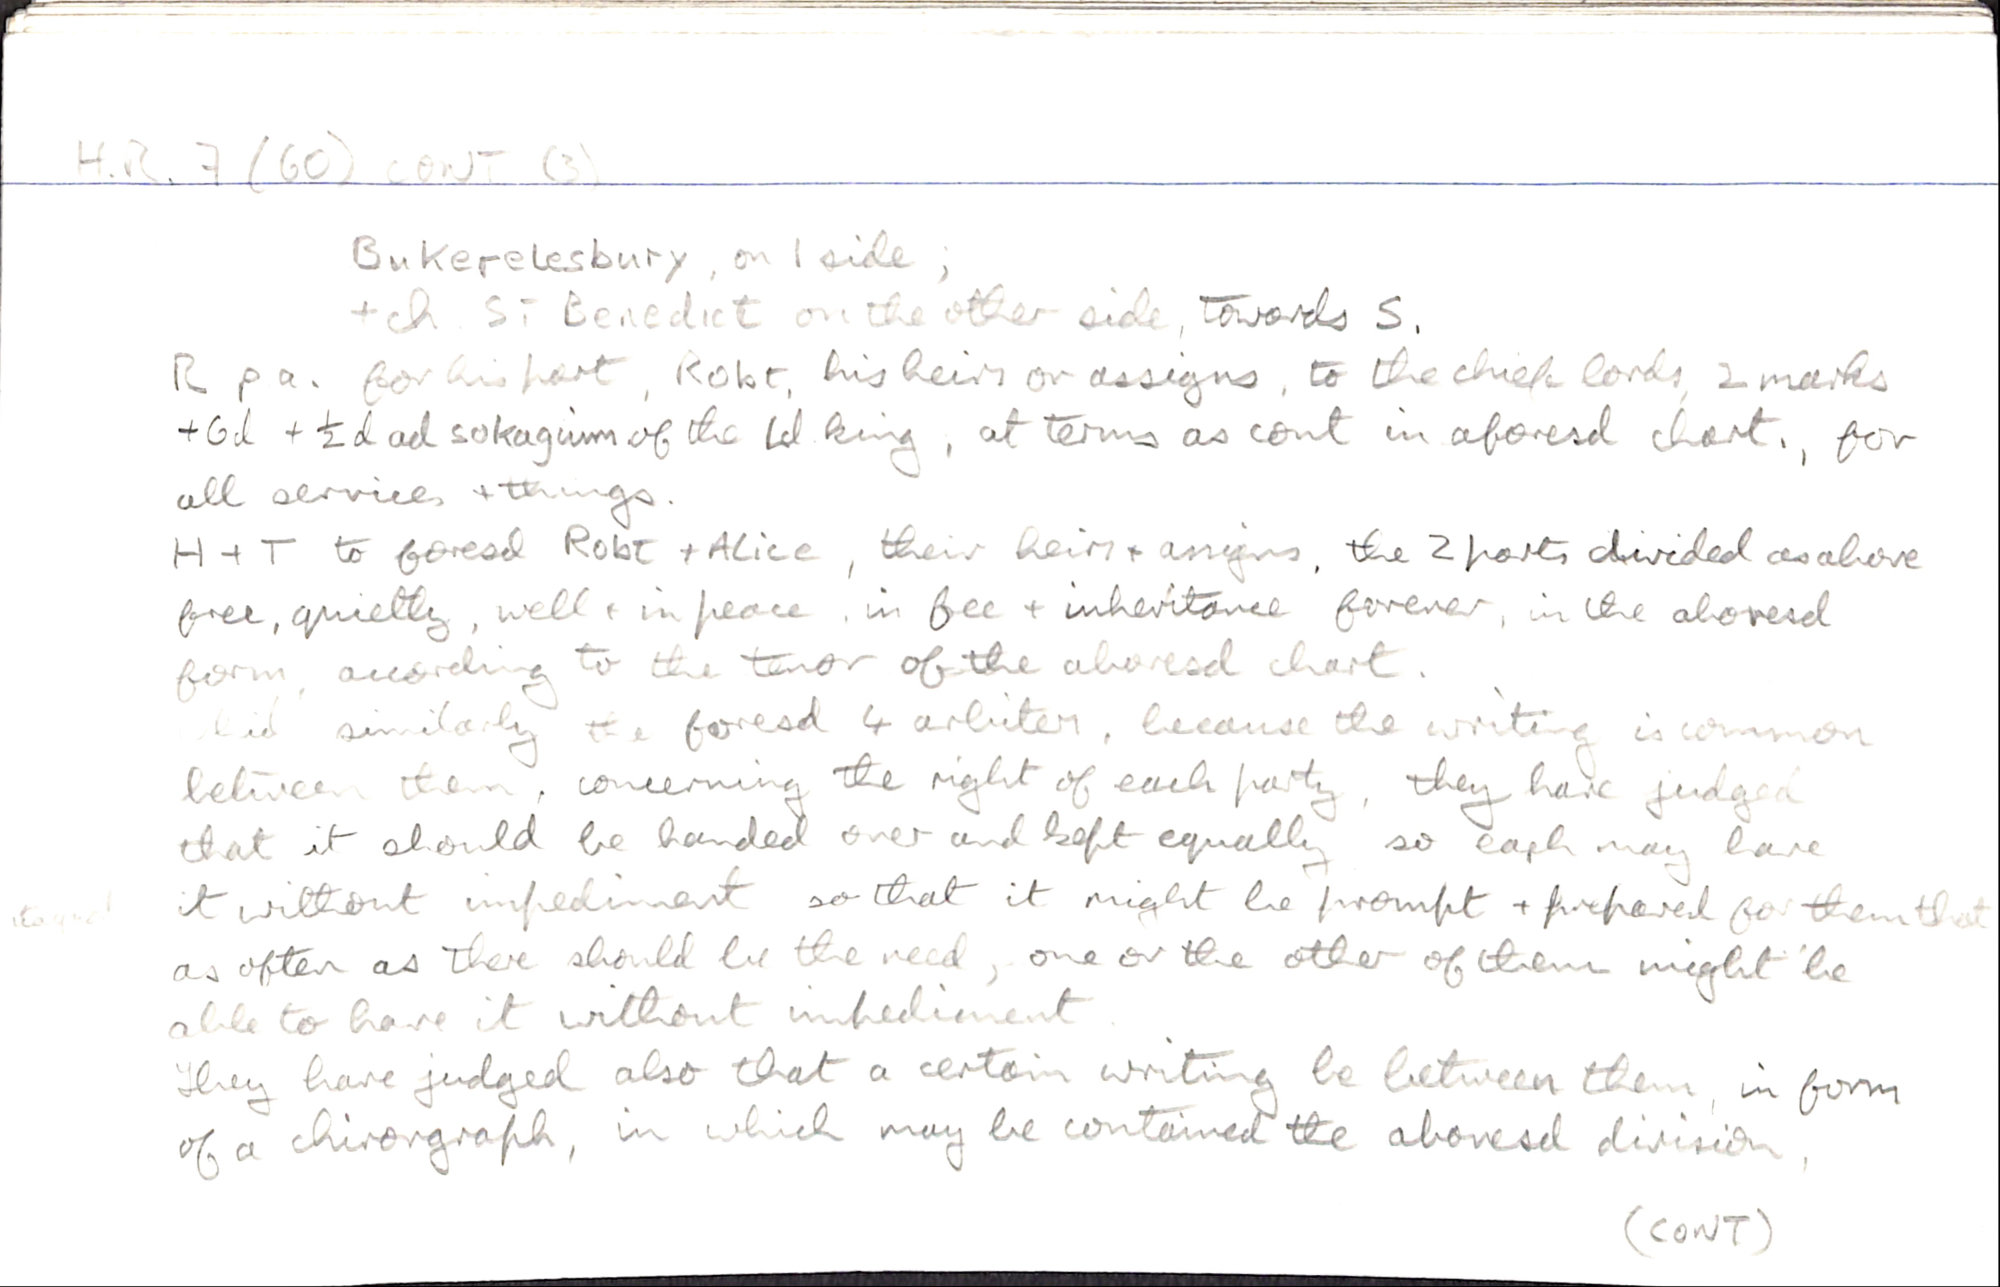 H.R. 7 (60) CONT (3)
Bukerelesbury, on 1 side;
+ ch. ST Benedict on the other side, towards S.
R p a. for his part, Robt, his heirs or assigns, to the chief lords, 2 marks
+ 6d + ½d ad sokagium of the ld king, at terms as cont in aforesd chart., for
all services + things.
H + T to foresd Robt + Alice, their heirs + assigns, the 2 parts divided as above
free, quietly, well + in peace, in fee + inheritance forever, in the abovesd
form, according to the tenor of the abovesd chart.
similarly the foresd 4 arbiters, because the writing is common
between them, concerning the right of each party, they have judged
that it should be handed over and kept equally so each may have
it without impediment so that it might be prompt + prepared for them that
as often as there should be the need, one or the other of them might be
able to have it without impediment.
They have judged also that a certain writing be between them, in form
of a chirorgraph, in which may be contained the abovesd division,
(CONT)